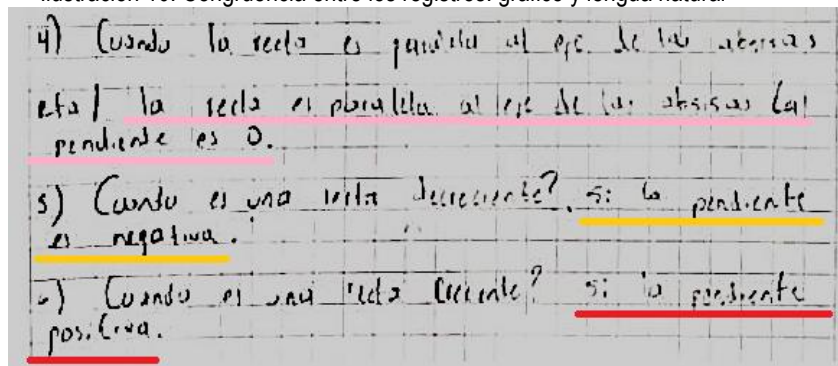 Ilustración 10. Congruencia entre los registros: gráfico y lengua natural
4) Cuando la recta es paralela al eje de las absisas
rta/ la recta es paralela al eje de las absisas la
pendiente es 0.
5) Cuando es una recta decreciente? si la pendiente
es negativa.
6) Cuando es una recta creciente? si la pendiente
positiva.